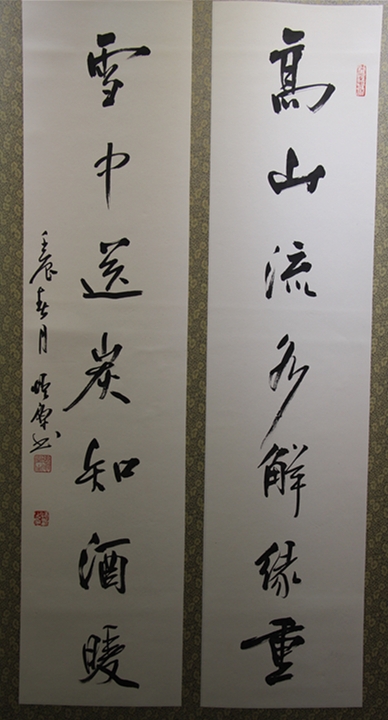 高山流水解緣重
雪中送炭知酒暖
壬辰春月
书